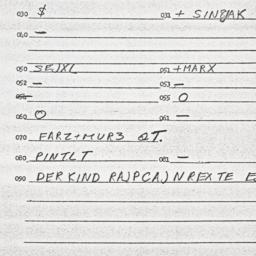 030 $ 031 + SINZJAK
040 —
050 SEJXL 051 +MARX
052 — 053 —
054 055 O
060 O 061 —
070 FARZ+MUR3 QT.
080 PINTLT 081 —
090 DER KIND